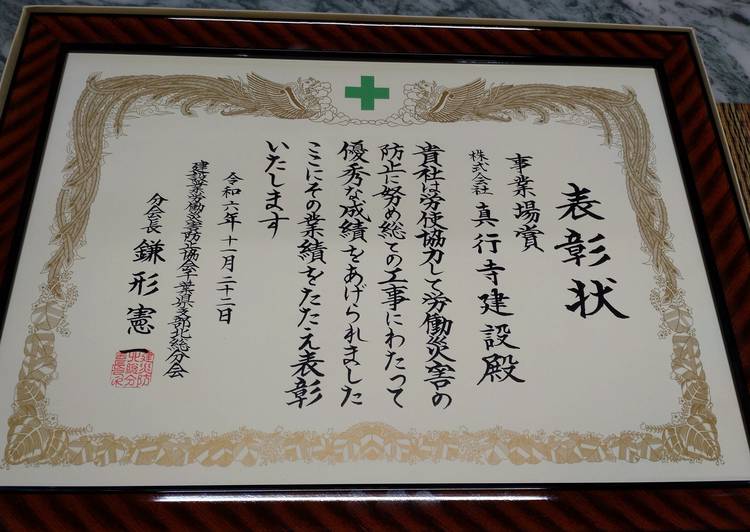 表彰状
事業場賞
株式会社 真行寺建設殿
貴社は労使協力して労働災害の
防止に努め総ての工事にわたって
優秀な成績をあげられました
ここにその業績をたたえ表彰
いたします
令和六年十一月二十二日
建設業労働災害防止協会千葉県支部北総分会
分会長 鎌形憲一